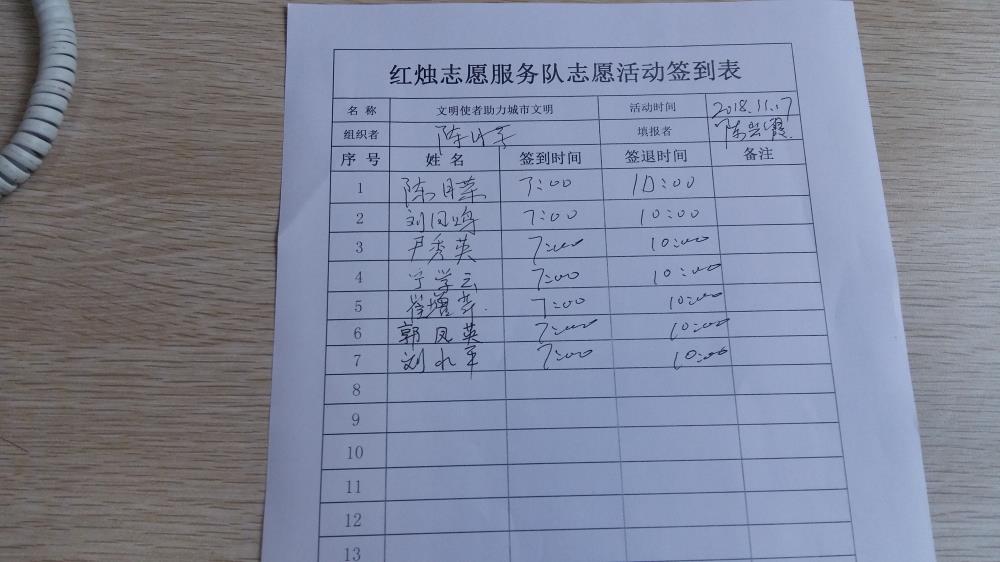 红烛志愿服务队志愿活动签到表
名 称 文明使者助力城市文明 活动时间 2018.11.17
组织者 陈 填报者 陈兰霞
序 号 姓 名 签到时间 签退时间 备注
1 陈月荣 7:00 10:00
2 刘凤鸣 7:00 10:00
3 尹秀英 7:00 10:00
4 宁学云 7:00 10:00
5 崔增 7:00 10:00
6 郭凤英 7:00 10:00
7 刘水军 7:00 10:00
8
9
10
11
12
13